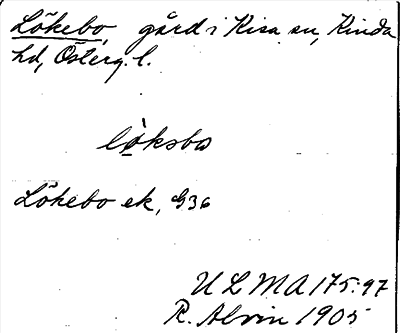 Lökebo, gård i Kisa sn, Kinda
hd, Österg. l.
löksbo
Lökebo ek, G36
ULMA 175:97
R. Alvin 1905